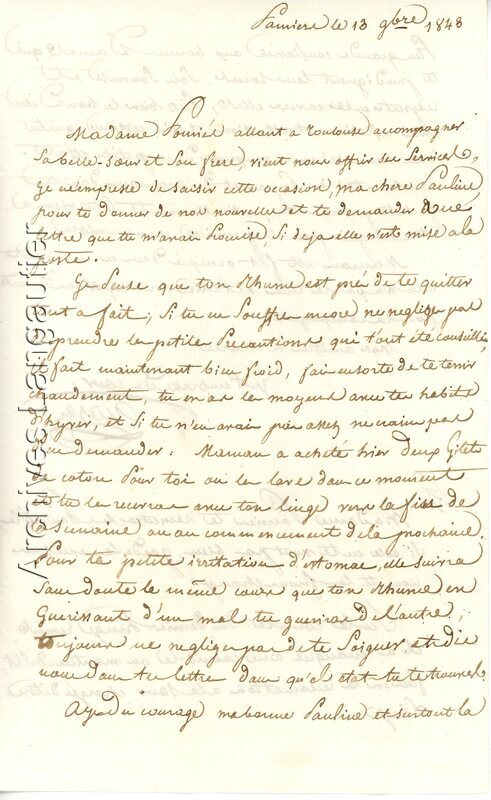 Pamiers le 13 9bre 1843
Madame Pouriés allant a Toulouse accompagner
Sa belle-sœur et Son frère, vient nous offrir ses Services,
Je m'empresse de saisir cette occasion, ma chère Pauline
pour te donner de nos nouvelle et te demander une
lettre que tu m'avais Promise Si deja elle n'est mise a la
poste.
Je Pense que ton Rhume est près de te quitter
tout a fait; Si tu en Souffre encore ne neglige pas
de prendre les petites Precautions qui t'ont été conseillées
il fait maintenant bien froid, fais ensorte de te tenir
chaudement, tu en as les moyens avec tes habits
d'hyver, et Si tu n'en avais pas assez ne crains pas
d'en demander. Maman a acheté hier deux Gilets
de coton Pour toi on les lave dans ce moment
et tu les recevras avec ton linge vers la fin de
la semaine ou au commencement de la prochaine.
Pour ta petite irritation d'estomac, elle suivra
Sans doute le même cours que ton Rhume en
Guerissant d'un mal tu gueriras de l'autre;
toujours ne neglige pas de te Soigner, et dis
nous dans ta lettre dans qu'el etat tu te trouves.
Aye du courage ma bonne Pauline et surtout la
Archives Lengaultier